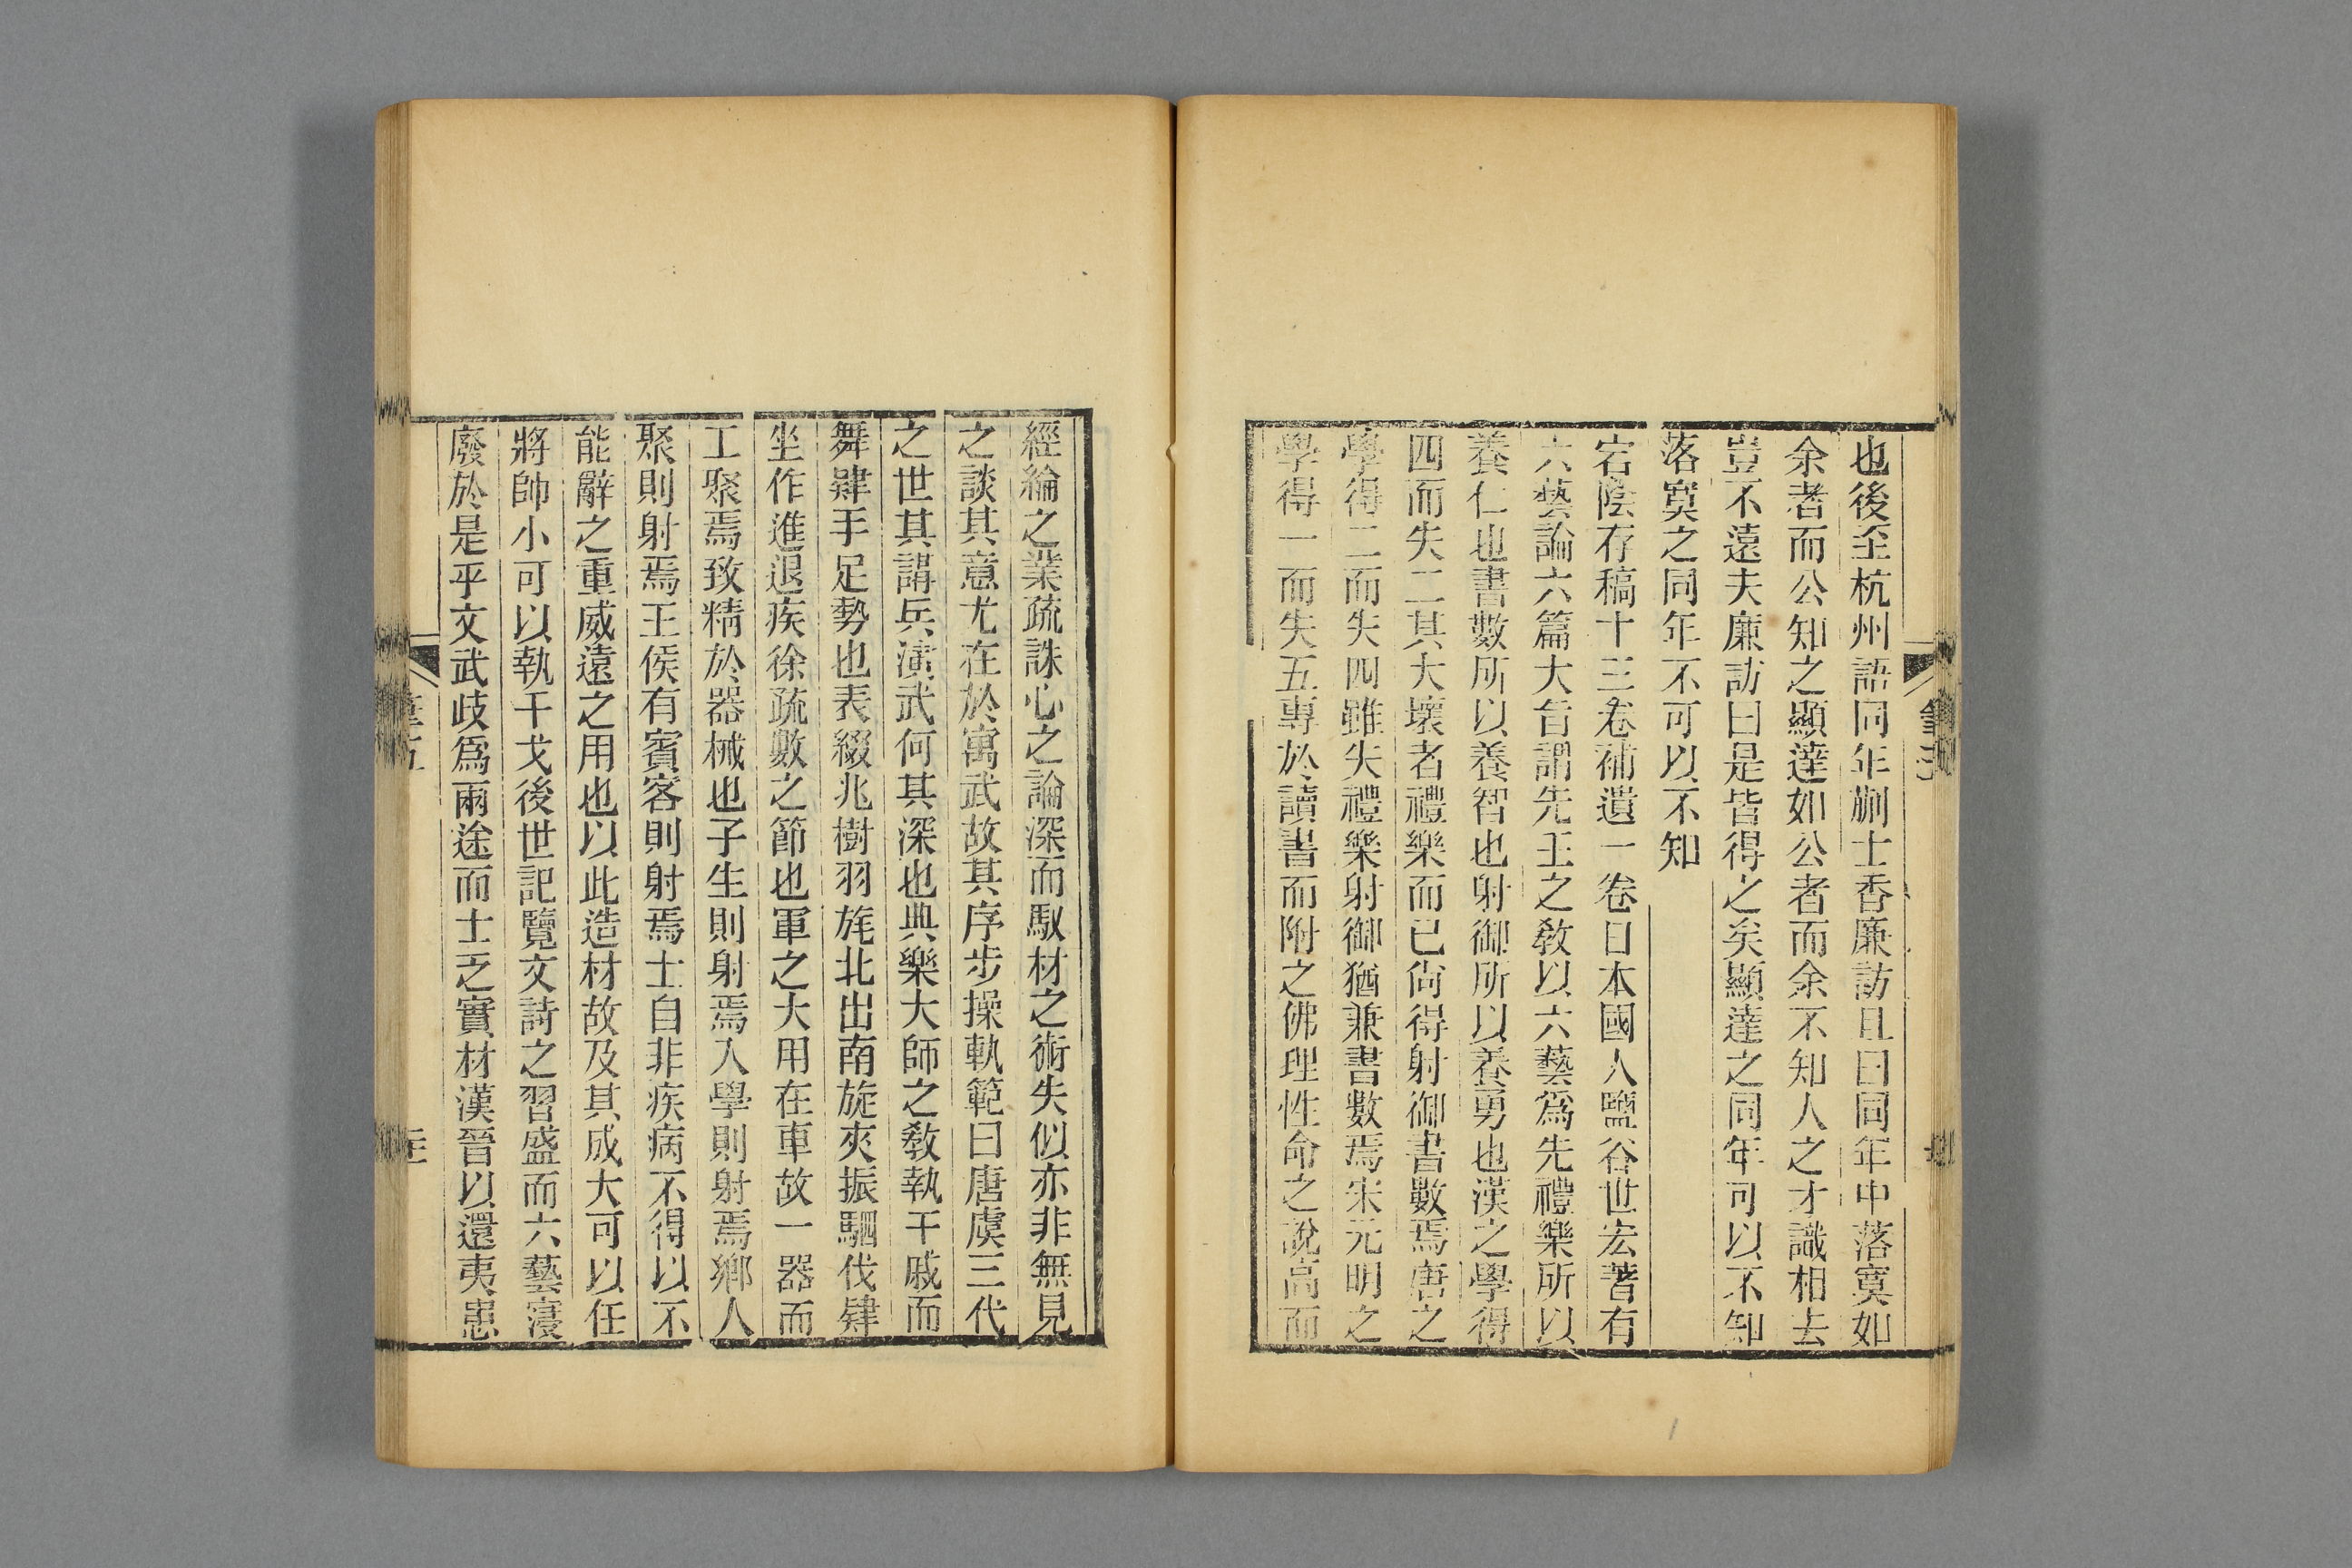 也後至杭州語同年蒯士香廉訪且曰同年中落寞如
余者而公知之顯達如公者而余不知人之才識相去
豈不遠夫廉訪曰是皆得之矣顯達之同年可以不知
落寞之同年不可以不知
宕陰存稿十三卷補遺一卷日本國人鹽谷世宏著有
六藝論六篇大旨謂先王之敎以六藝爲先禮樂所以
養仁也書數所以養智也射御所以養勇也漢之學得
四而失二其大壞者禮樂而已尙得射御書數焉唐之
學得二而失四雖失禮樂射御猶兼書數焉宋元明之
學得一而失五專於讀書而附之佛理性命之說高而
經綸之業疏誅心之論深而馭材之術失似亦非無見
之談其意尤在於寓武故其序步操軌範曰唐虞三代
之世其講兵演武何其深也典樂大師之敎執干戚而
舞肄手足勢也表綴兆樹羽旄北出南旋夾振駟伐肄
坐作進退疾徐疏數之節也軍之大用在車故一器而
工聚焉致精於器械也子生則射焉入學則射焉鄉人
聚則射焉王侯有賓客則射焉士自非疾病不得以不
能辭之重威遠之用也以此造材故及其成大可以任
將帥小可以執干戈後世記覽文詩之習盛而六藝寖
廢於是乎文武歧爲兩途而士乏實材漢晉以還夷患